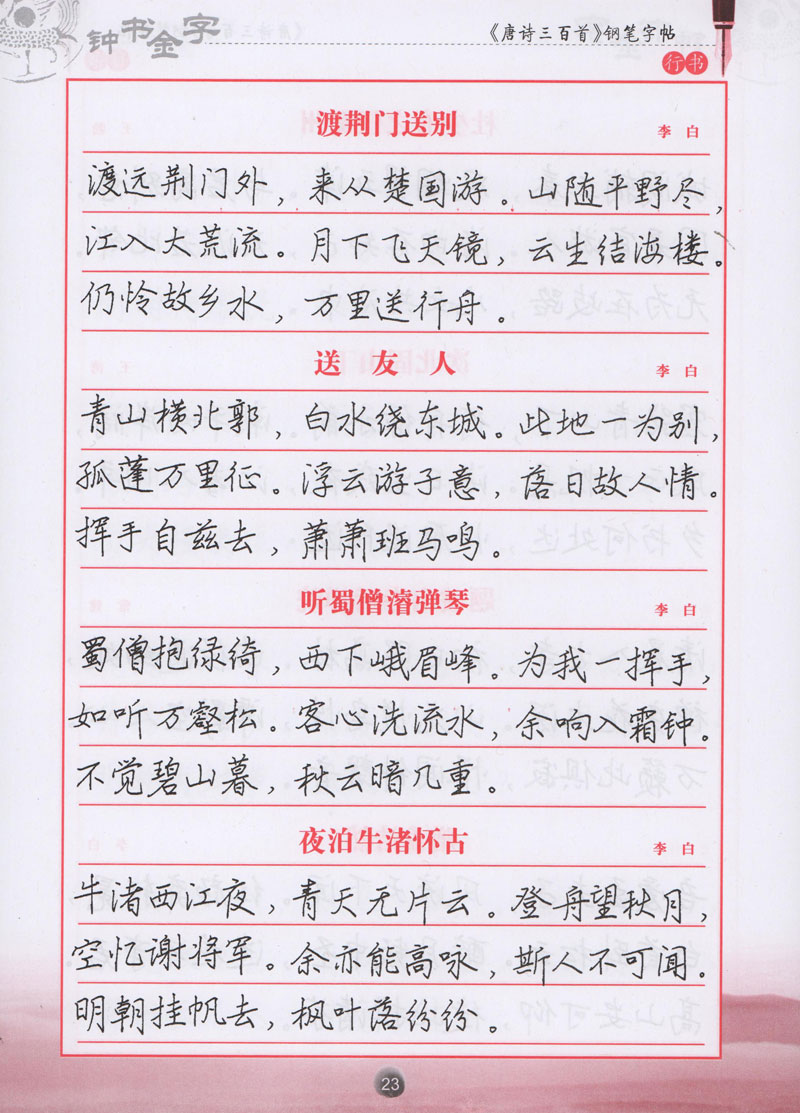 钟书金字
《唐诗三百首》钢笔字帖
行书
渡荆门送别 李白
渡远荆门外，来从楚国游。山随平野尽，
江入大荒流。月下飞天镜，云生结海楼。
仍怜故乡水，万里送行舟。
送友人 李白
青山横北郭，白水绕东城。此地一为别，
孤蓬万里征。浮云游子意，落日故人情。
挥手自兹去，萧萧班马鸣。
听蜀僧濬弹琴 李白
蜀僧抱绿绮，西下峨眉峰。为我一挥手，
如听万壑松。客心洗流水，余响入霜钟。
不觉碧山暮，秋云暗几重。
夜泊牛渚怀古 李白
牛渚西江夜，青天无片云。登舟望秋月，
空忆谢将军。余亦能高咏，斯人不可闻。
明朝挂帆去，枫叶落纷纷。
23